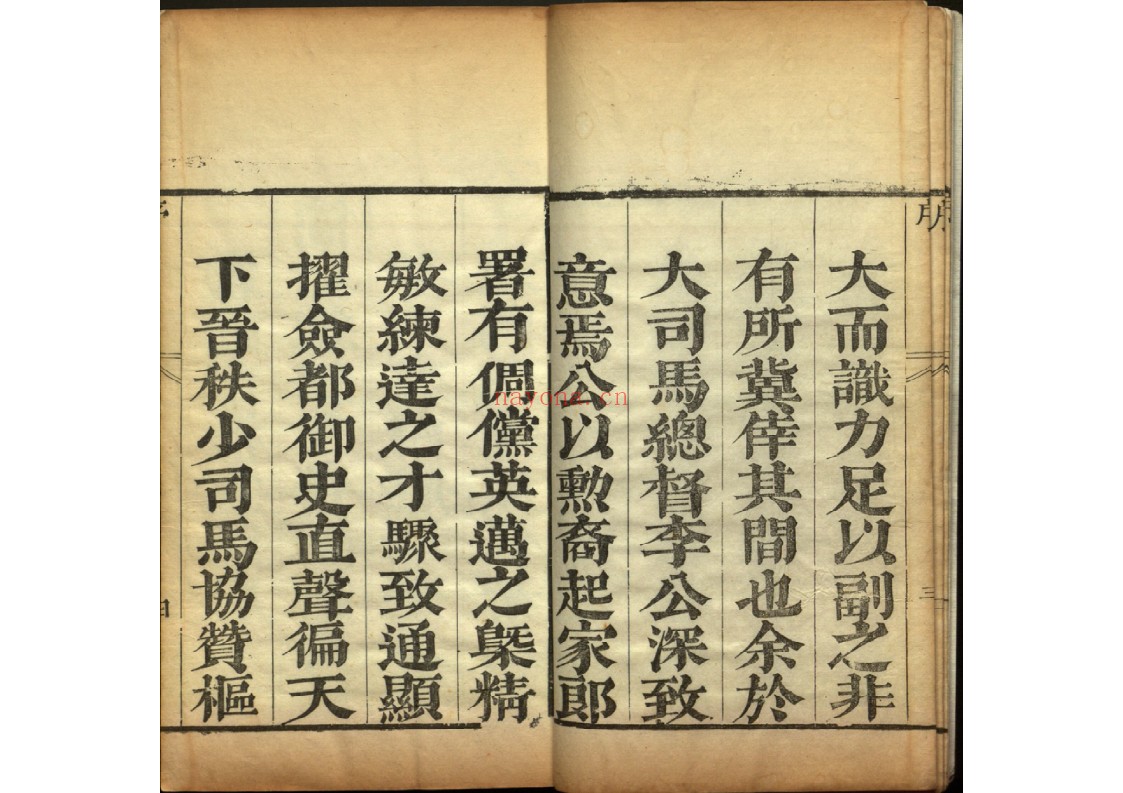 大而識力足以副之非
有所冀倖其間也余於
大司馬總督李公深致
意焉公以勲裔起家郎
署有倜儻英邁之槩精
敏練達之才驟致通顯
擢僉都御史直聲徧天
下晉秩少司馬協贊樞
三
nayona.cn